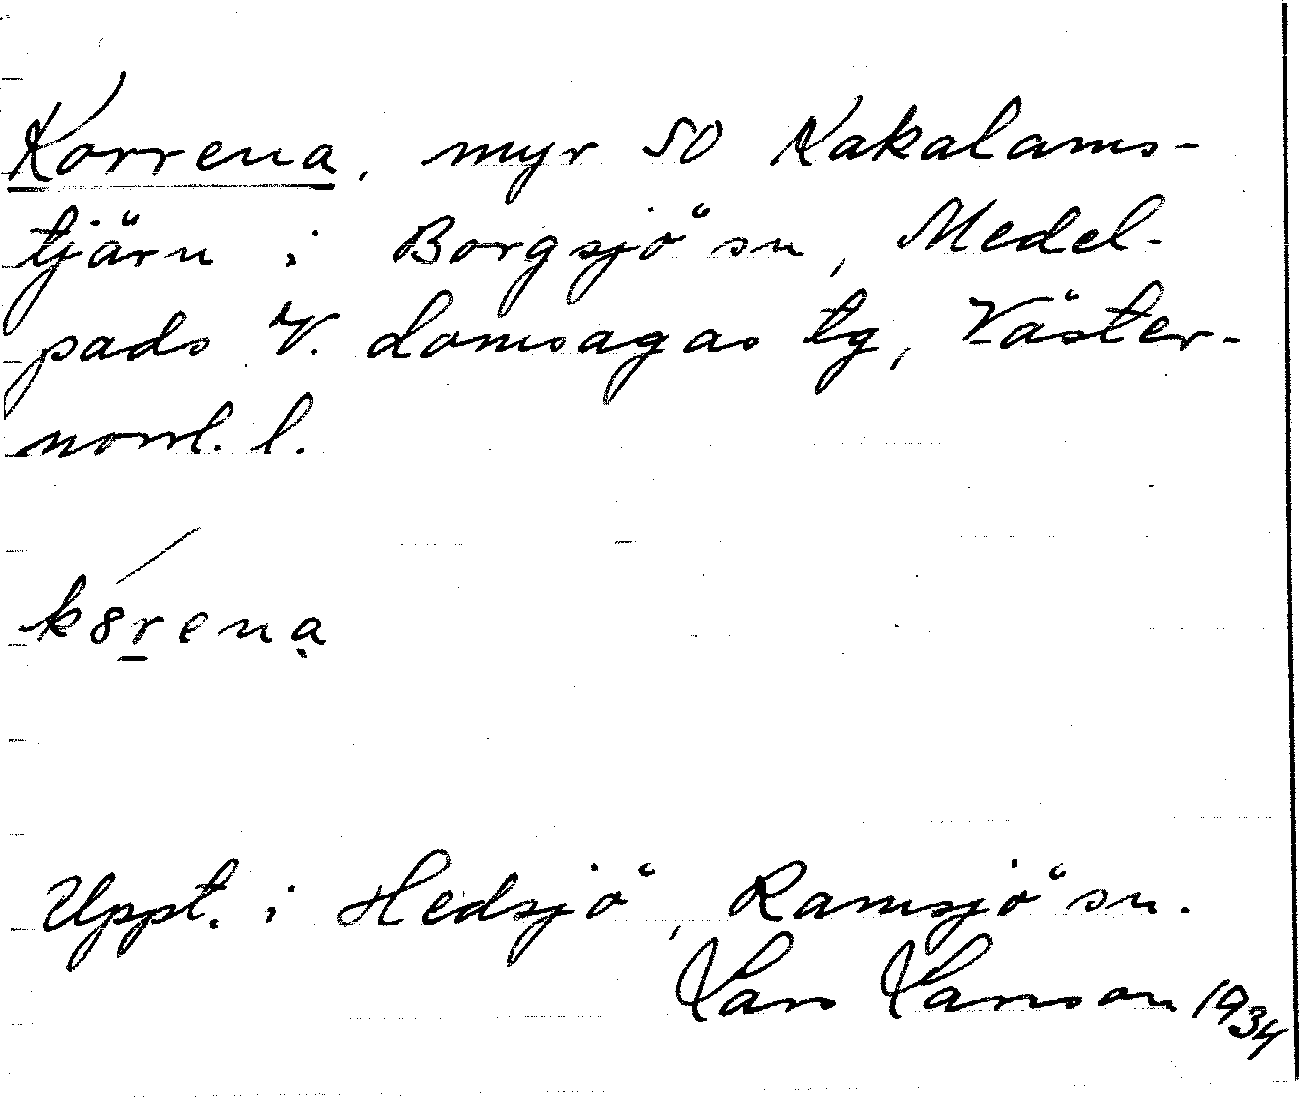 Korrena, myr SO Kakalams-
tjärn i Borgsjö sn, Medel-
pads V. domsagas tg, Väster-
norrl. l.
k8rena
Uppt. i Hedsjö, Ramsjö sn.
Lars Larsson 1934